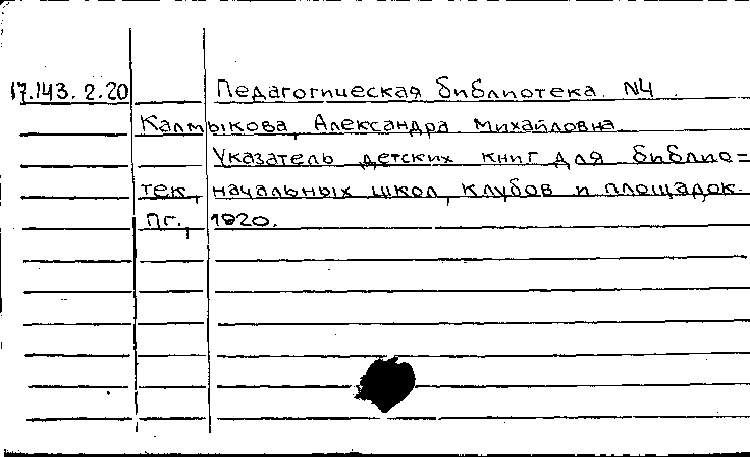 17.143.2.20 Педагогическая библиотека. N4.
Калмыкова, Александра Михайловна
Указатель детских книг для библио=
тек, начальных школ, клубов и площадок.
Пг., 1920.